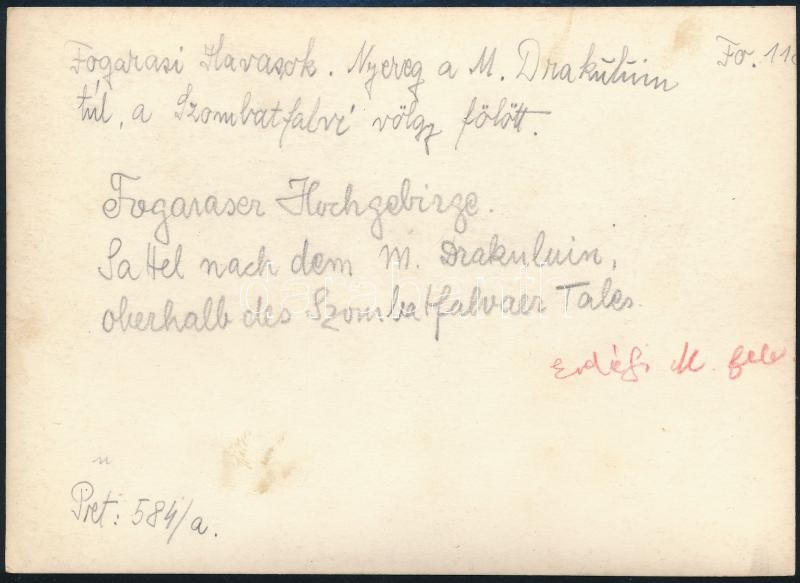 Fogarasi Havasok. Nyereg a M. Drakuluin Fo. 118
túl, a Szombatfalvi völgy fölött.
Fogaraser Hochgebirge.
Sattel nach dem M. Drakuluin,
oberhalb des Szombatfalvaer Tales.
darabanth
Erdélyi M. felv
Pret: 584/a.